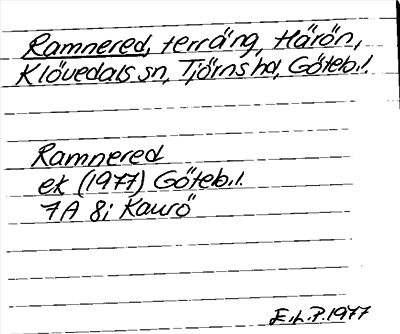 Ramnered, terräng, Härön,
Klövedals sn, Tjörns hd, Göteb.l.
Ramnered
ek (1977) Göteb.l.
7A 8i Kaurö
E.L.P. 1977